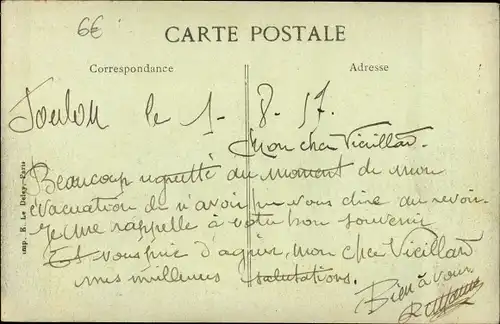 6€
CARTE POSTALE
Correspondance
Adresse
Toulon le 1-8-17.
Mon cher Vieillard.
Beaucoup regretté au moment de mon
évacuation de n'avoir pu vous dire au revoir.
Je me rappelle à votre bon souvenir
Et vous prie d'agréer, mon cher Vieillard
mes meilleures salutations.
Bien à vous.
Imp. E. Le Deley, Paris